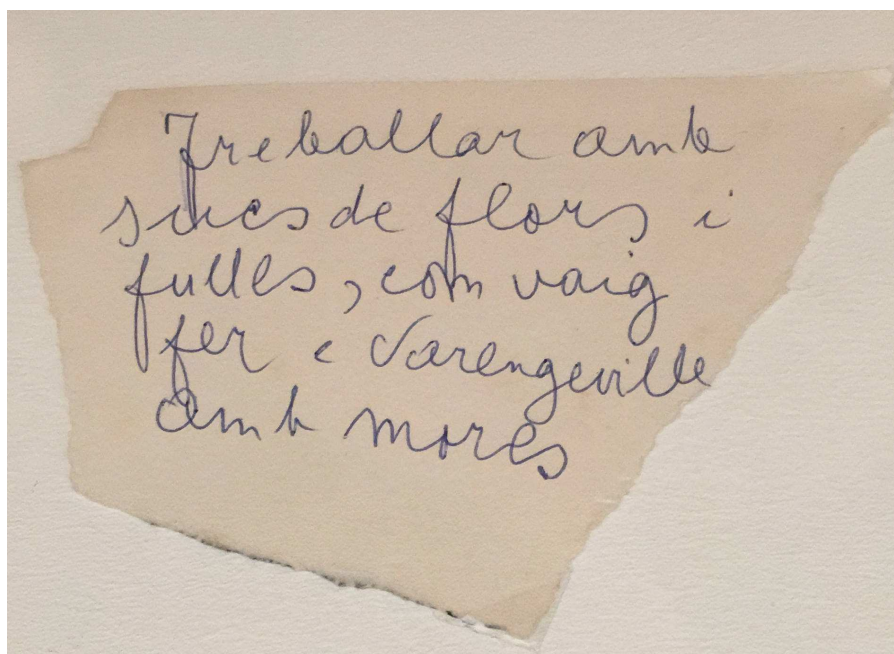 Treballar amb
sucs de flors i
fulles, com vaig
fer a Varengeville
amb mores